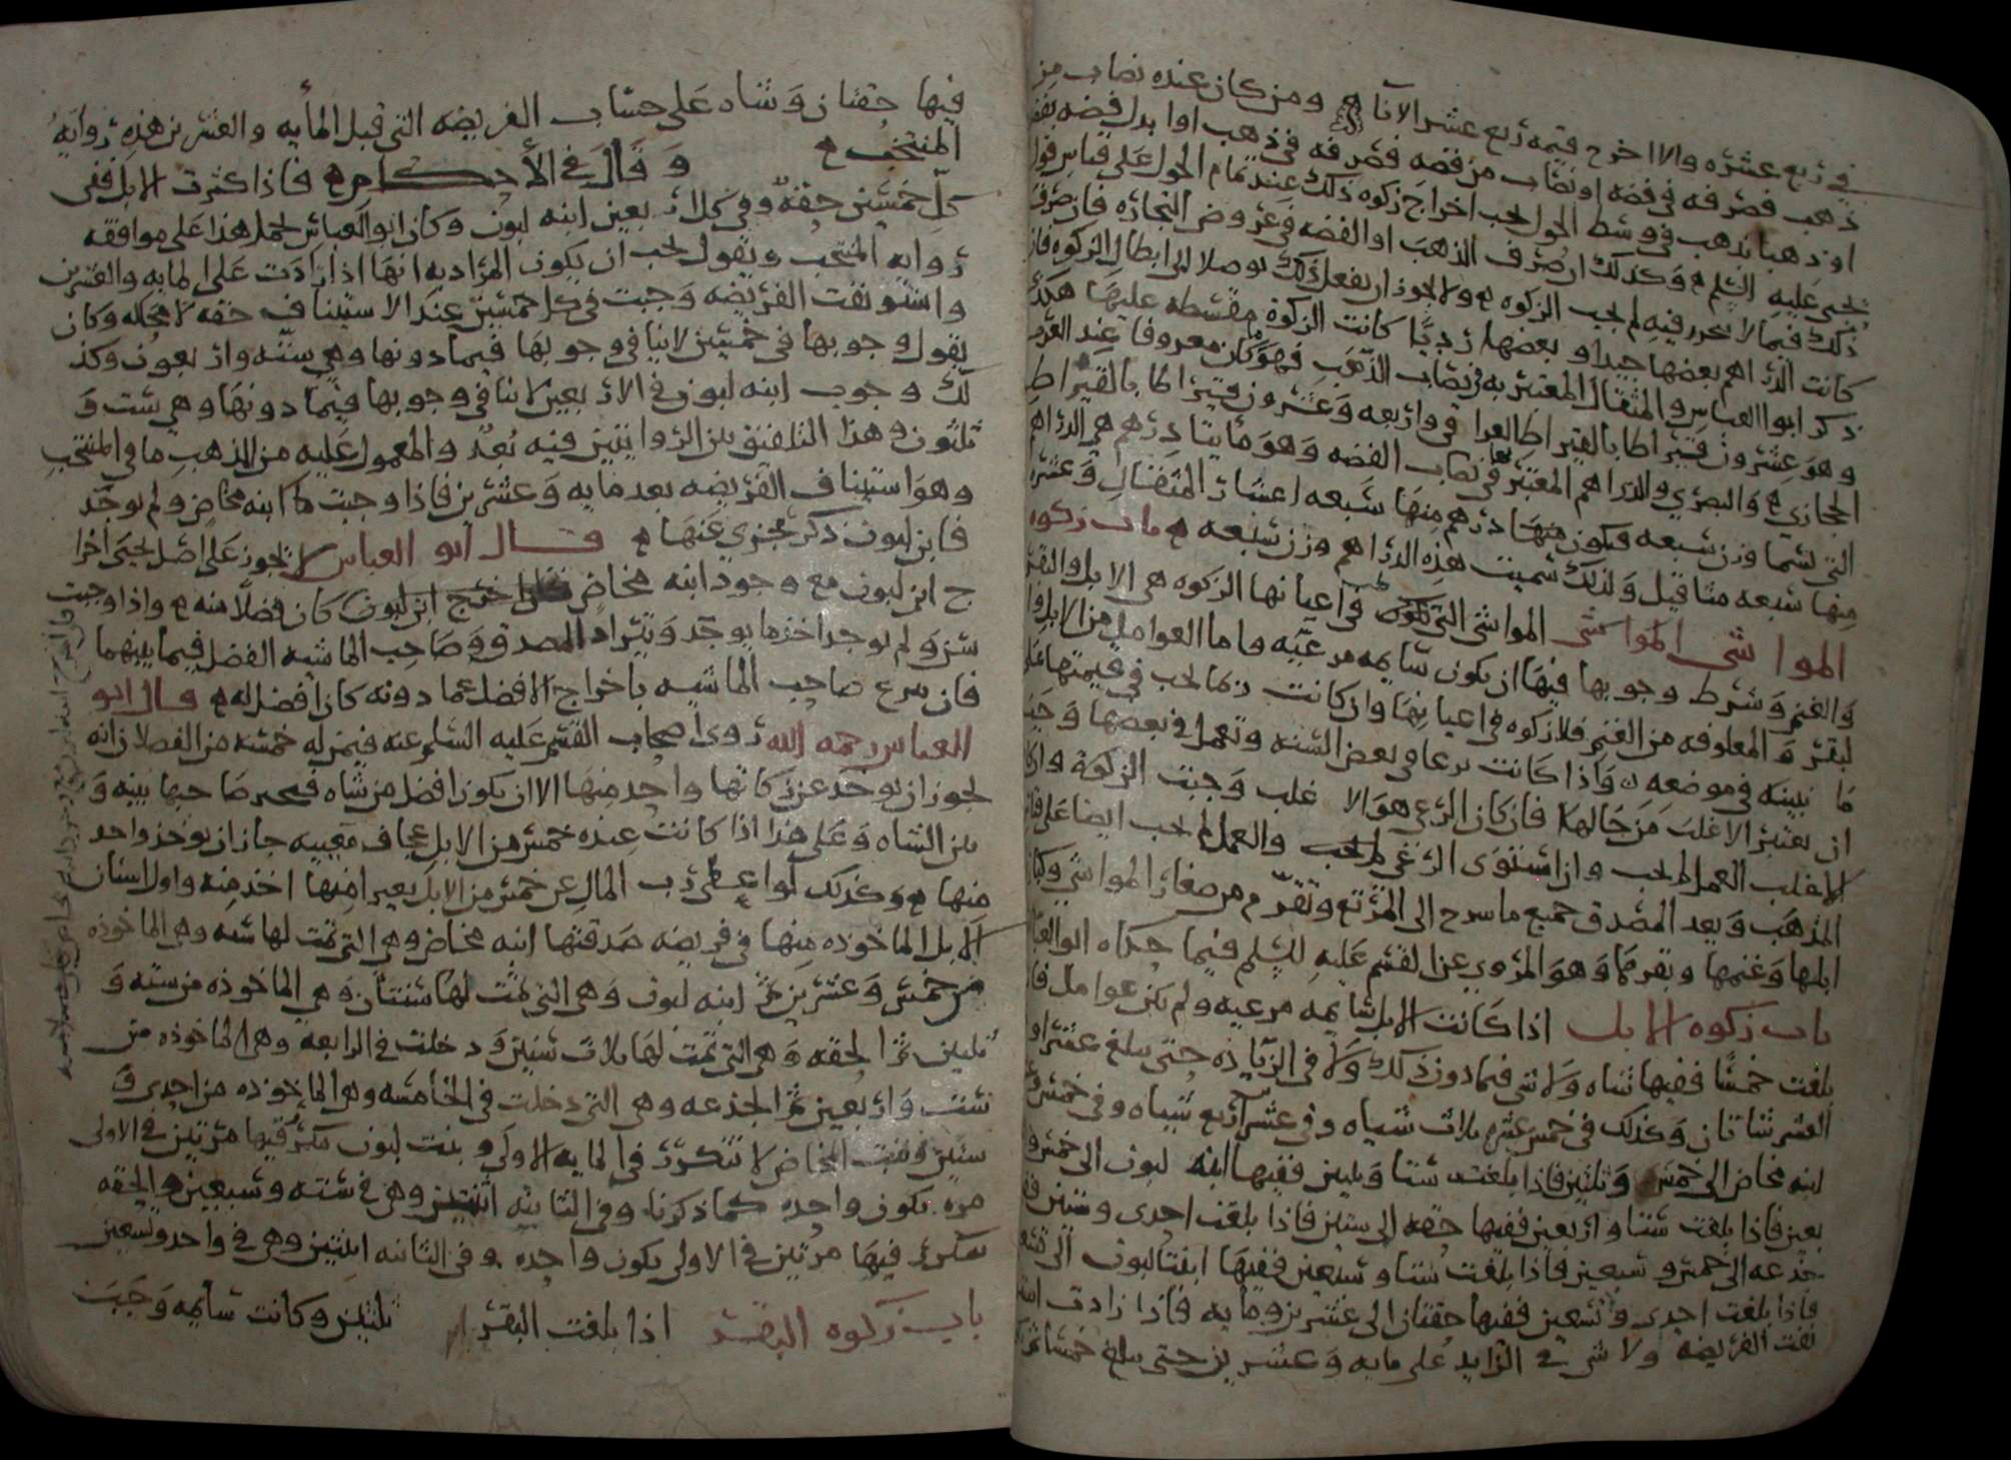 في ربع عشره والا اخرج قيمه ربع عشر الانآ ومن كان عنده نصاب من
ذهب فصرفه في فضه او نصاب من فضه فصرفه في ذهب او ابدل فضه بفضه
او ذهبا بذهب في وسط الحول لحب اخراج زكوه ذلك عند تمام الحول على قياس قول
يحيى عليه السلم وكذلك ان صرف الذهب او الفضه في عروض التجاره فان صرف
ذلك فيما لا يجب فيه لم لحب الزكوه ولا يجوز ان يفعل ذلك توصلا الى ابطال الزكوه فان
كانت الدراهم بعضها جيدا وبعضها رديًا كانت الزكوة مقسطه عليها هكذا
ذكر ابو العباس والمثقال المعتبر به في نصاب الذهب فهو ما كان معروفا عند العرب
وهو عشرون قيراطا بالقيراط العراقي واربعه وعشرون قيراطا بالقيراط
الحجازي والبصري والدراهم المعتبر بها في نصاب الفضه وهو مايتا درهم هي الدراهم
التي تسما وزن سبعه فيكون منها درهم سبعه اعشار المثقال وعشره
منها سبعه مثاقيل ولذلك سميت هذه الدراهم وزن سبعه باب زكوه
المواشي المواشي التي لحب في اعيانها الزكوه هي الابل والبقر
والغنم وشرط وجوبها فيها ان يكون سايمه مرعيه واما العوامل من الابل وا
لبقر والمعلوفه من الغنم فلا زكوه في اعيانها وان كانت ربما لحب في قيمتها على
ما نبينه في موضعه واذا كانت ترعا في بعض السنه وتعمل في بعضها وجب
ان يعتبر الاغلب من حالها فان كان الرعي هو الاغلب وجبت الزكوة وان
الاغلب العمل لم لحب وان استوى الرعي والعمل لم لحب ايضا على قياس
المذهب ويعد المصدق جميع ما سرح الى المرتع من صغار المواشي وكبار
ابلها وغنمها وبقرها وهو المروي عن القسم عليه السلم فيما حكاه ابو العباس
باب زكوه الابل اذا كانت الابل سايمه مرعيه ولم يكن عوامل فاذا
بلغت خمسًا ففيها شاه ولا شي فيما دون ذلك ولا في الزياده حتى يبلغ عشرا وفي
العشر شاتان وكذلك في خمس عشره ثلاث شياه وفي عشرين اربع شياه وفي خمس وعشرين
ابنه مخاض الى خمس وثلثين فاذا بلغت ستا وثلثين ففيها ابنه لبون الى خمس وار
بعين فاذا بلغت ستا واربعين ففيها حقه الى ستين فاذا بلغت احدى وستين ففيها
جذعه الى خمس وسبعين فاذا بلغت ستا وسبعين ففيها ابنتا لبون الى تسعين
فاذا بلغت احدى وتسعين ففيها حقتان الى عشرين ومايه فاذا زادت استو
نفت الفريضه ولا شي في الزايد على مايه وعشرين حتى يبلغ خمسا ثم
فيها حقتان وشاه على حساب الفريضه التي قبل المأيه والعشرين هذه روايه
المنتخب وقال في الأحكام فاذا كثرت الابل ففي
كل خمسين حقه وفي كل اربعين ابنه لبون وكان ابو العباس لحمل هذا على موافقه
روايه المنتخب ويقول لحب ان يكون المراد به انها اذا زادت على المايه والعشرين
واستونفت الفريضه وجبت في كل خمسين عند الاستيناف حقه لا محاله وكان
يقول وجوبها في خمسين لا ينافي وجوبها فيما دونها وهي سته واربعون وكذ
لك وجوب ابنه لبون في الاربعين لا ينافي وجوبها فيما دونها وهي ست و
ثلثون وهذا التلفيق بين الروايتين فيه بُعدٌ والمعمول عليه من المذهب ما في المنتخب
وهو استيناف الفريضه بعد مايه وعشرين فاذا وجبت ابنه مخاض ولم يوجد
فابن لبون ذكر يجزي عنها قال ابو العباس لا يجوز على اصل يحيى اخرا
ج ابن لبون مع وجود ابنه مخاض ابن لبون كان فضلًا منه واذا وجبت
سن ولم يوجد اخذ ما يوجد ويتراد المصدق وصاحب الماشيه الفضل فيما بينهما
فان تبرع صاحب الماشيه باخراج الافضل عما دونه كان افضل له قال ابو
العباس رحمه الله روى اصحاب القسم عليه السلم عنه فيمن له خمسه من الفصلان انه
لجوز ان يوخذ عن زكاتها واحد منها الا ان يكون افضل من شاه فيخير صاحبها بينه و
بين الشاه وعلى هذا اذا كانت عنده خمس من الابل عجاف معيبه جاز ان يوخذ واحد
منها وكذلك لو اعطى رب المال عن خمس من الابل بعيرا منها اخذ منه واول اسنان
الابل الماخوذه منها في فريضه صدقتها ابنه مخاض وهي التي تمت لها سنه وهي الماخوذه
من خمس وعشرين ثم ابنه لبون وهي التي تمت لها سنتان وهي الماخوذه من سته و
ثلثين ثم الحقه وهي التي تمت لها ثلاث سنين ودخلت في الرابعه وهي الماخوذه من
ست واربعين ثم الجذعه وهي التي دخلت في الخامسه وهي الماخوذه من احدى و
ستين فبنت المخاض لا تتكرر في المايه الاولى وبنت لبون يتكرر فيها مرتين في الاولى
مره يكون واحده كما ذكرنا وفي الثانيه اثنتين وهي في سته وسبعين والحقه
يتكرر فيها مرتين في الاولى يكون واحده وفي الثانيه اثنتين وهي في واحد وتسعين
باب زكوه البقر اذا بلغت البقر ثلثين وكانت سأيمه وجبت